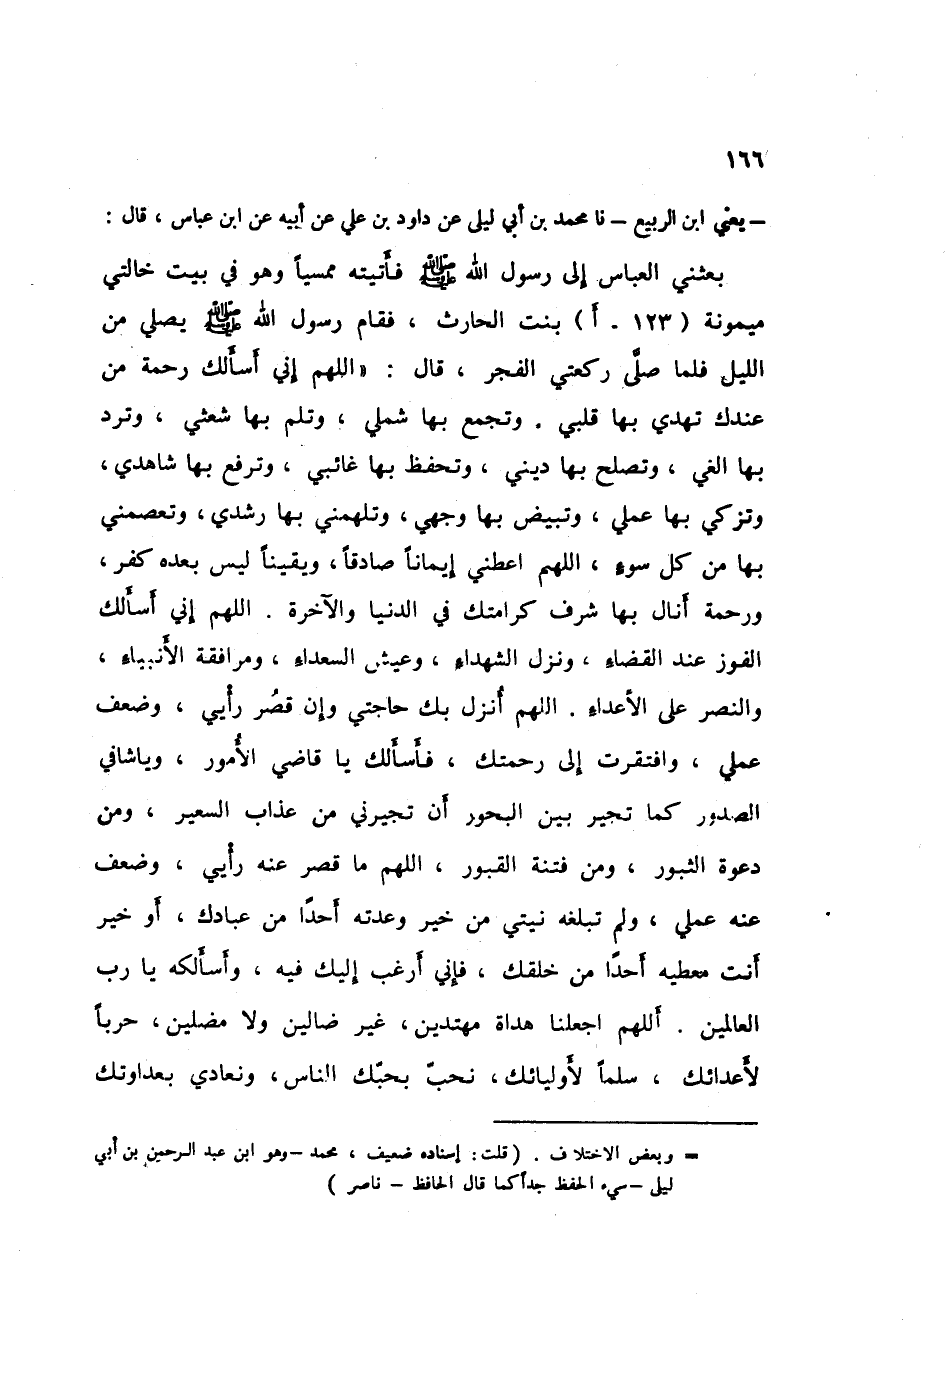 ١٦٦
– يعني ابن الربيع – نا محمد بن أبي ليلى عن داود بن علي عن أبيه عن ابن عباس ، قال :
بعثني العباس إلى رسول الله ﷺ فأتيته ممسياً وهو في بيت خالتي
ميمونة ( ١٢٣ ـ أ ) بنت الحارث ، فقام رسول الله ﷺ يصلي من
الليل فلما صلَّى ركعتي الفجر ، قال : « اللهم إني أسألك رحمة من
عندك تهدي بها قلبي . وتجمع بها شملي ، وتلم بها شعثي ، وترد
بها الغي ، وتصلح بها ديني ، وتحفظ بها غائبي ، وترفع بها شاهدي ،
وتزكي بها عملي ، وتبيض بها وجهي ، وتلهمني بها رشدي ، وتعصمني
بها من كل سوء ، اللهم اعطني إيماناً صادقاً ، ويقيناً ليس بعده كفر ،
ورحمة أنال بها شرف كرامتك في الدنيا والآخرة . اللهم إني أسألك
الفوز عند القضاء ، ونزل الشهداء ، وعيش السعداء ، ومرافقة الأنبياء ،
والنصر على الأعداء . اللهم أُنزل بك حاجتي وإن قصُر رأيي ، وضعف
عملي ، وافتقرت إلى رحمتك ، فأسألك يا قاضي الأُمور ، وياشافي
الصدور كما تجير بين البحور أن تجيرني من عذاب السعير ، ومن
دعوة الثبور ، ومن فتنة القبور ، اللهم ما قصر عنه رأيي ، وضعف
عنه عملي ، ولم تبلغه نيتي من خير وعدته أحدًا من عبادك ، أو خير
أنت معطيه أحدًا من خلقك ، فإني أرغب إليك فيه ، وأسألكه يا رب
العالمين . أللهم اجعلنا هداة مهتدين ، غير ضالين ولا مضلين ، حرباً
لأعدائك ، سلماً لأوليائك ، نحبّ بحبّك الناس ، ونعادي بعداوتك
= وبعض الاختلاف . ( قلت : إسناده ضعيف ، محمد – وهو ابن عبد الرحمن بن أبي
ليلى – سيء الحفظ جداً كما قال الحافظ – ناصر )